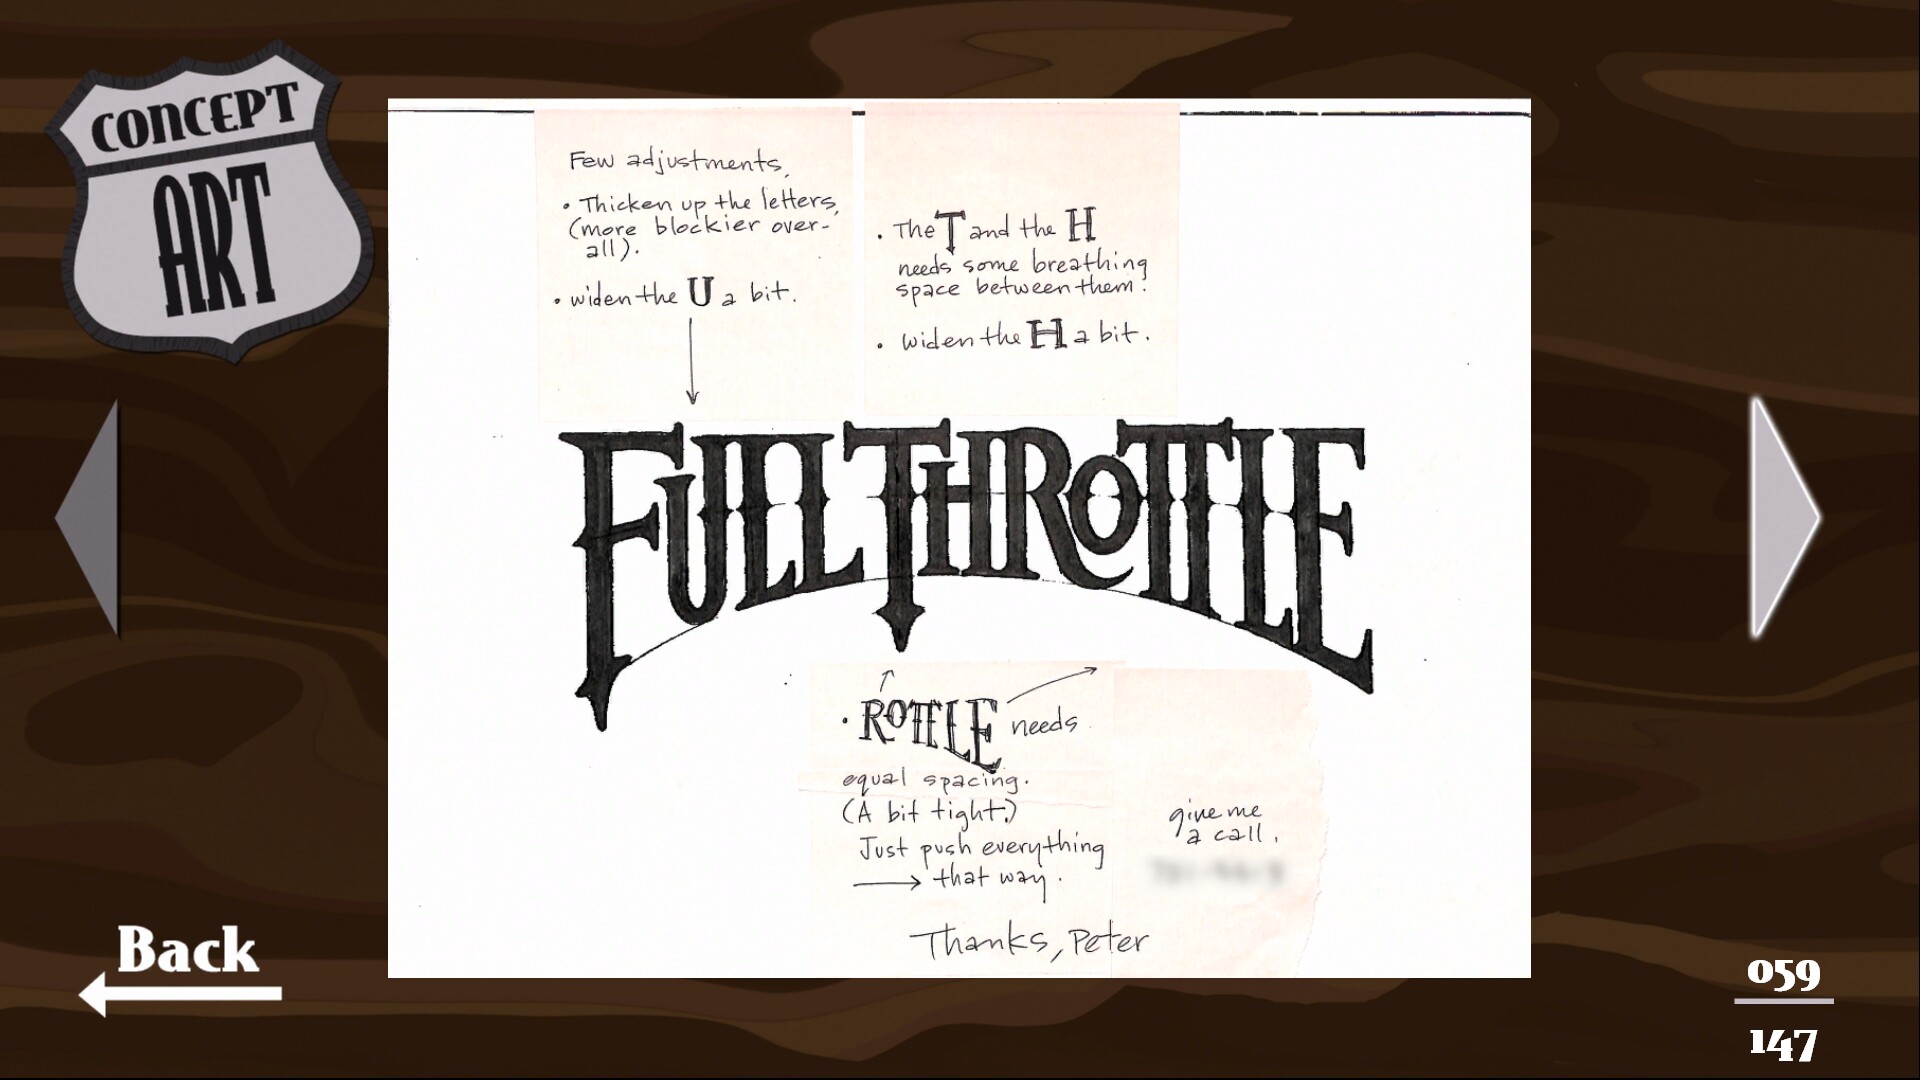 CONCEPT
ART
Few adjustments,
• Thicken up the letters,
(more blockier over-
all).
• widen the U a bit.
• The T and the H
needs some breathing
space between them.
• widen the H a bit.
FULL THROTTLE
• ROTTLE needs
equal spacing.
(A bit tight.)
Just push everything
→ that way.
give me
a call.
Thanks, Peter
Back
059
147